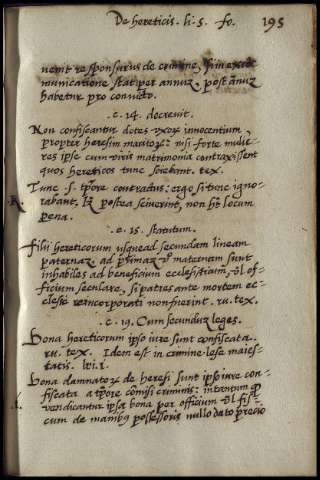 De hereticis. li. 5. fo. 195
venit responsurus de crimine, si in excō
municatione stat per annuz, post ānuz
habetur pro convicto.
.c. 14. decrevit.
Non confiscantur dotes vxoꝝ innocentium
propter heresim maritoꝝ: nisi forte mulie-
res ipse cum viris matrimonia contraxissent
quos hereticos tunc sciebant. tex.
Tunc .s. tp̄ore contractus: ergo si tunc igno-
rabant, lꝫ postea sciverint, non hn̄t locum
pena.
.c. 15. statutum.
Filii hereticorum usquead secundam lineam
paternaz. ad primaz vͦ maternam sunt
inhabiles ad beneficium ecclesiasticum, vl̓ of-
ficium seculare, si patres ante mortem ec-
clesie reincorporati non fuerint. ru. tex.
.c. 19. Cum secunduz leges.
Bona hereticorum ipso iure sunt confiscata.
ru. tex. Idem est in crimine lese maies-
tatis.
Bona damnatoꝝ de heresi sunt ipso iure con-
fiscata a tp̄ore cōmissi criminis: intantum ꝙ
vendicantur ipsa bona per officium vl̓ fis-
cum de manibus possessoris nullo dato precio